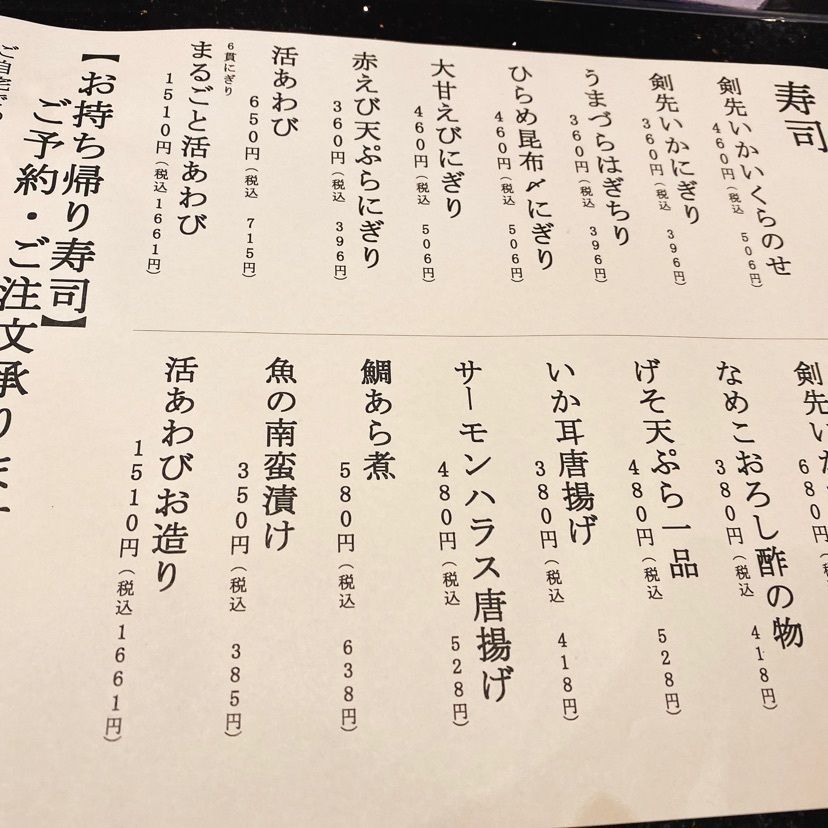 寿司
剣先いかいくらのせ
460円（税込 506円）
剣先いかにぎり
360円（税込 396円）
うまづらはぎちり
360円（税込 396円）
ひらめ昆布〆にぎり
460円（税込 506円）
大甘えびにぎり
460円（税込 506円）
赤えび天ぷらにぎり
360円（税込 396円）
活あわび
650円（税込 715円）
6貫にぎり
まるごと活あわび
1510円（税込1661円）
剣先い
680円（税
なめこおろし酢の物
380円（税込 418円）
げそ天ぷら一品
480円（税込 528円）
いか耳唐揚げ
380円（税込 418円）
サーモンハラス唐揚げ
480円（税込 528円）
鯛あら煮
580円（税込 638円）
魚の南蛮漬け
350円（税込 385円）
活あわびお造り
1510円（税込1661円）
【お持ち帰り寿司】
ご予約・ご注文承ります